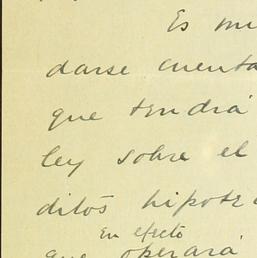 Es mu
darse cuenta
que tendrá
ley sobre el
ditos hipote
En efecto
que operará